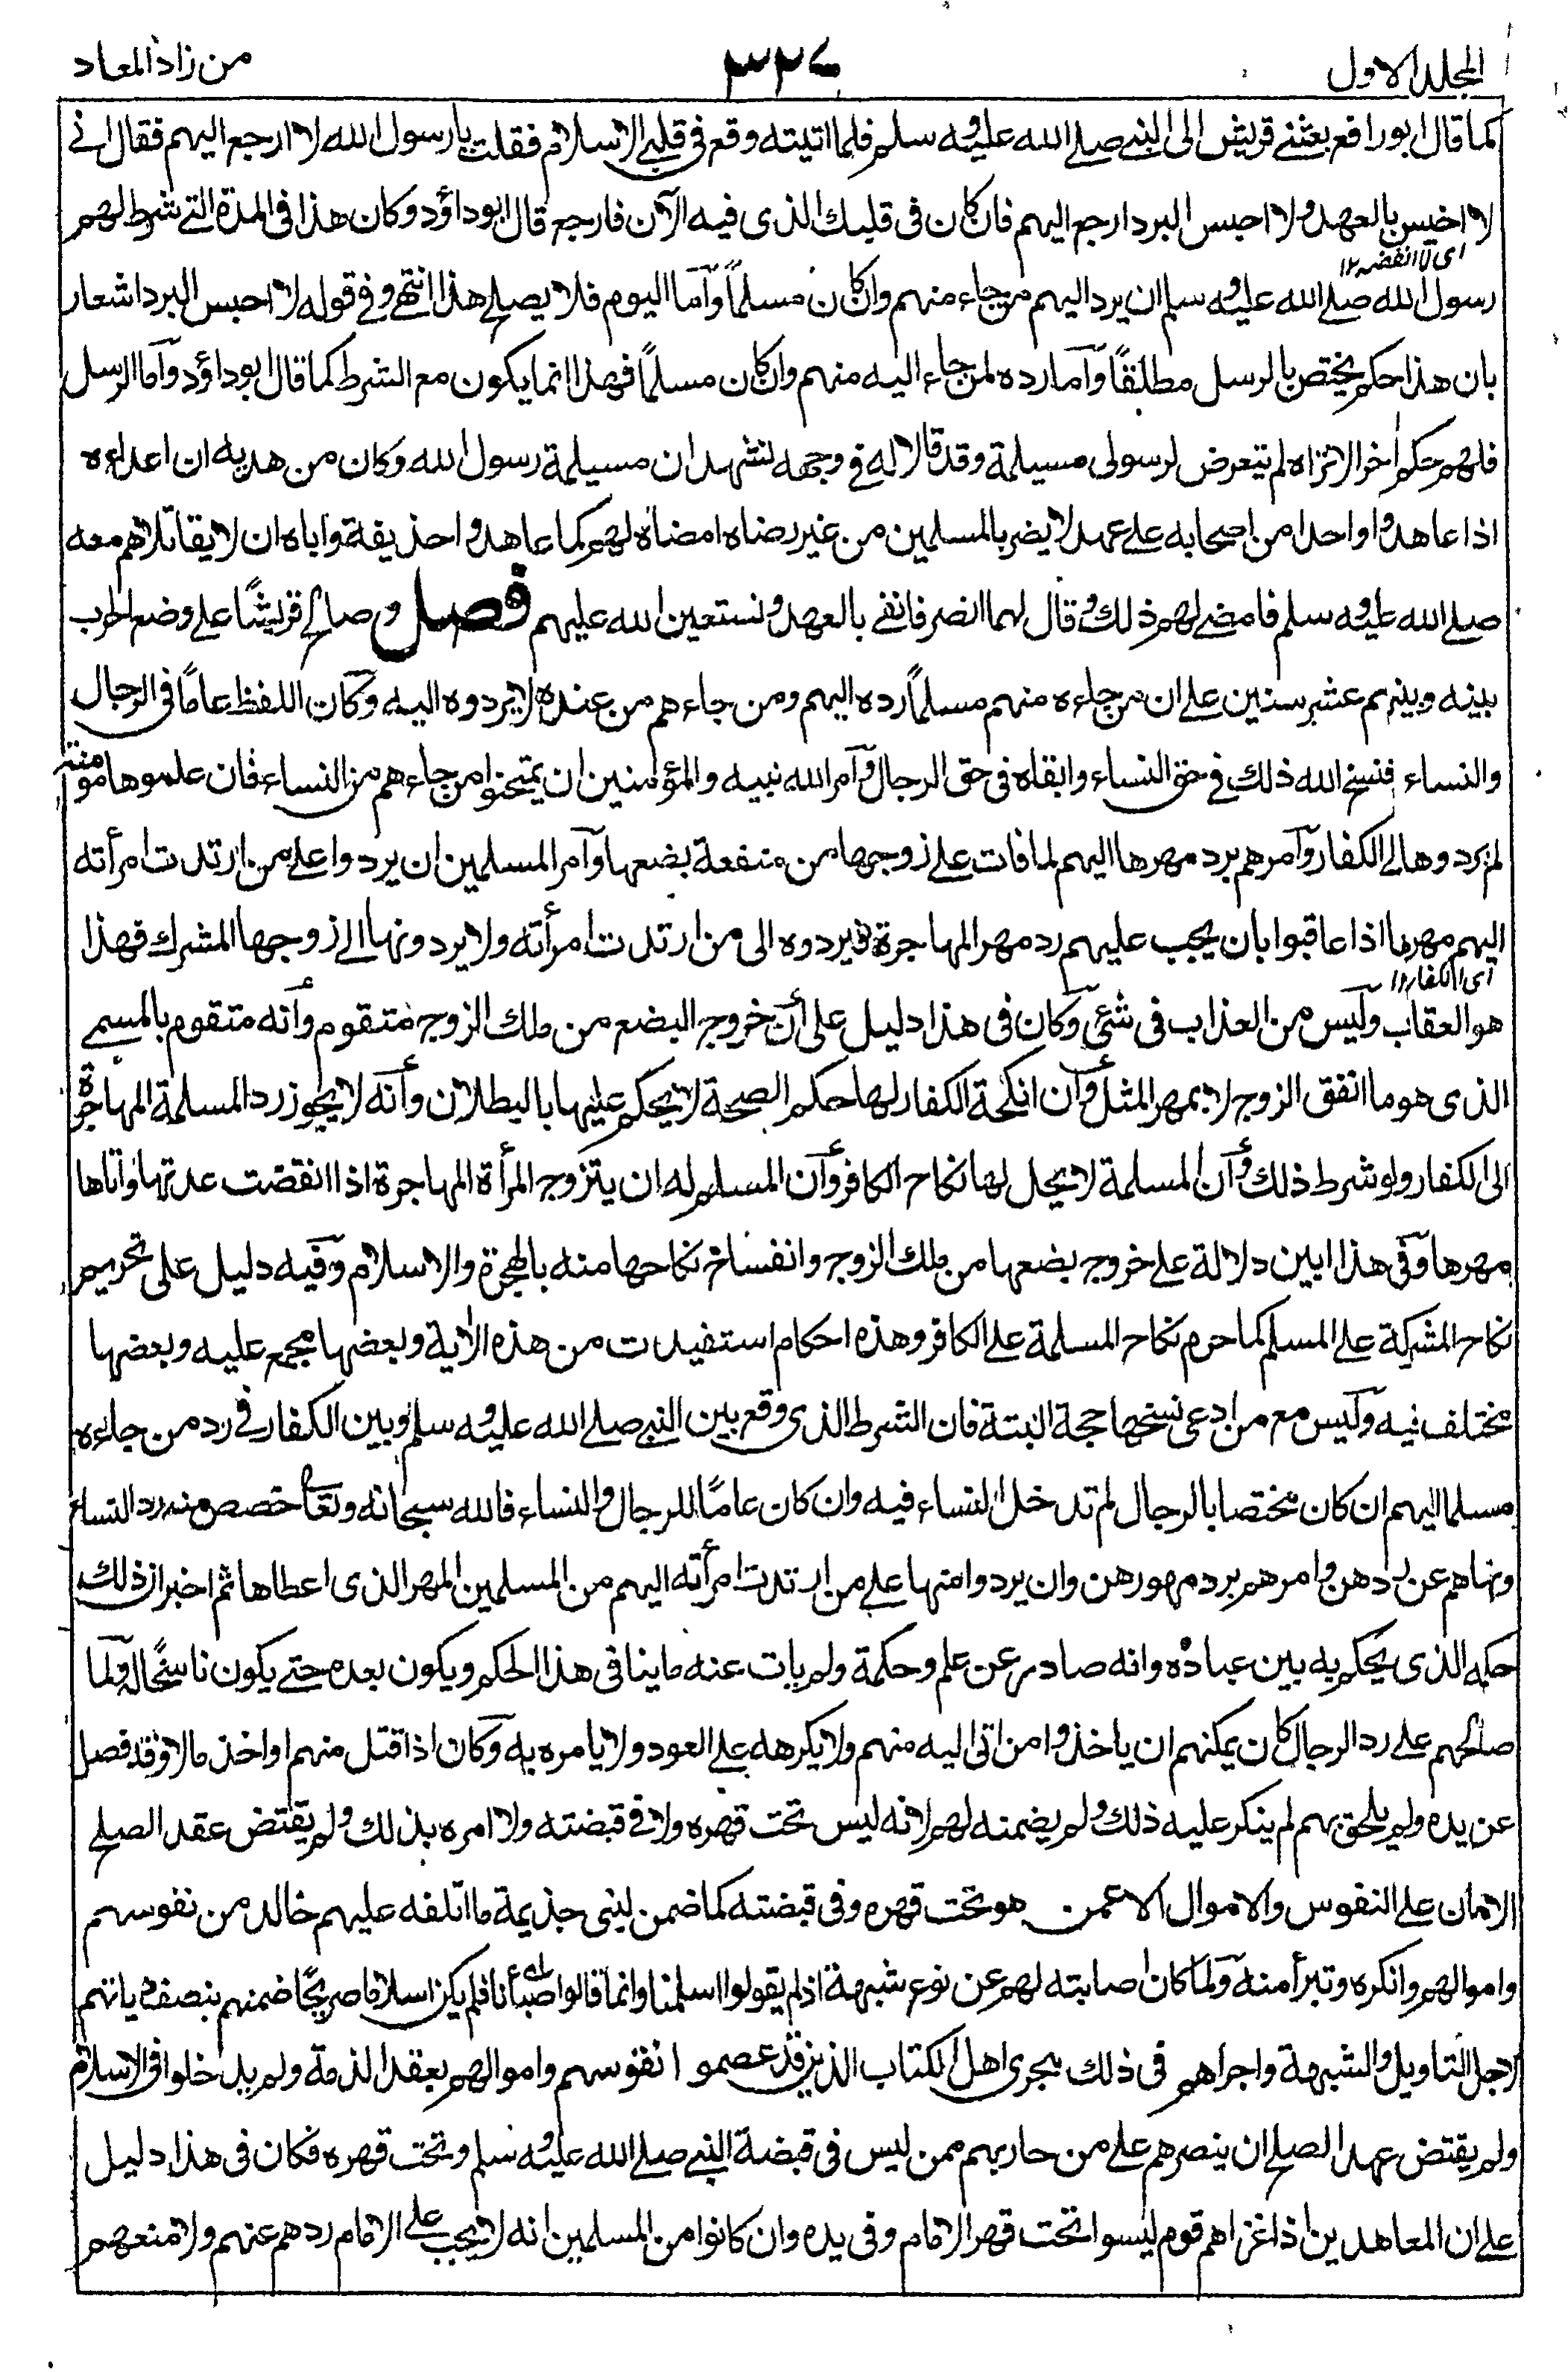 المجلد الاول
٣٢٧
من زاد المعاد
كما قال ابو رافع بعثنى قريش الى النبى صلى الله عليه وسلم فلما اتيته وقع فى قلبى الاسلام فقلت يا رسول الله لا ارجع اليهم فقال انى
لا اخيس بالعهد ولا احبس البرد ارجع اليهم فان كان فى قلبك الذى فيه الآن فارجع قال ابو داؤد وكان هذا فى المدة التى شرط لهم
اى لا انقضه ١٢
رسول الله صلى الله عليه وسلم ان يرد اليهم من جاء منهم وان كان مسلماً وآما اليوم فلا يصلح هذا انتهى وفى قوله لا احبس البرد اشعار
بان هذا حكم يختص بالرسل مطلقاً وآما رده لمن جاء اليه منهم وان كان مسلماً فهذا انما يكون مع الشرط كما قال ابو داؤد وآما الرسل
فلهم حكم اخر الا تراه لم يتعرض لرسولى مسيلمة وقد قالا له فى وجهه نشهد ان مسيلمة رسول الله وكان من هديه ان اعداءه
اذا عاهدوا واحدا من اصحابه على عهد لا يضر بالمسلمين من غير رضاه امضاه لهم كما عاهدوا حذيفة واباه ان لا يقاتلاهم معه
صلى الله عليه وسلم فامضى لهم ذلك وقال لهما انصرفا نفى بالعهد ونستعين الله عليهم فصل وصالح قريشًا على وضع الحرب
بينه وبينهم عشر سنين على ان من جاءه منهم مسلماً رده اليهم ومن جاءهم من عنده لا يردوه اليه وكان اللفظ عامًا فى الرجال
والنساء فنسخ الله ذلك فى حق النساء وابقاه فى حق الرجال وآمر الله نبيه والمؤمنين ان يمتحنوا من جاءهم من النساء فان علموها مؤمنة
لم يردوها الى الكفار وآمرهم برد مهرها اليهم لما فات على زوجها من منفعة بضعها وآمر المسلمين ان يردوا على من ارتدت امرأته
اليهم مهرها اذا عاقبوا بان يجب عليهم رد مهر المهاجرة فيردوه الى من ارتدت امرأته ولا يردونها الى زوجها المشرك فهذا
اى الكفار ١٢
هو العقاب وليس من العذاب فى شئ وكان فى هذا دليل على أن خروج البضع من ملك الزوج متقوم وأنه متقوم بالمسمى
الذى هو ما انفق الزوج لا بمهر المثل وأن انكحة الكفار لها حكم الصحة لا يحكم عليها بالبطلان وأنه لا يجوز رد المسلمة المهاجرة
الى الكفار ولو شرط ذلك وأن المسلمة لا يحل لها نكاح الكافر وأن المسلم له ان يتزوج المرأة المهاجرة اذا انقضت عدتها واتاها
مهرها وفى هذا ابين دلالة على خروج بضعها من ملك الزوج وانفساخ نكاحها منه بالهجرة والاسلام وفيه دليل على تحريم
نكاح المشركة على المسلم كما حرم نكاح المسلمة على الكافر وهذه احكام استفيدت من هذه الآية وبعضها مجمع عليه وبعضها
مختلف فيه وليس مع من ادعى نسخها حجة البتة فان الشرط الذى وقع بين النبى صلى الله عليه وسلم وبين الكفار فى رد من جاءه
مسلما اليهم ان كان مختصا بالرجال لم تدخل النساء فيه وان كان عامًا للرجال والنساء فالله سبحانه وتعالى خصص منه رد النساء
ونهاهم عن ردهن وامرهم برد مهورهن وان يردوا منها على من ارتدت امرأته اليهم من المسلمين المهر الذى اعطاها ثم اخبر ان ذلك
حكمه الذى يحكم به بين عباده وانه صادر عن علم وحكمة ولم يات عنه ما ينافى هذا الحكم ويكون بعده حتى يكون ناسخًا له ولما
صالحهم على رد الرجال كان يمكنهم ان ياخذوا من اتى اليه منهم ولا يكرهه على العود ولا يامره به وكان اذا قتل منهم او اخذ مالا وقد فصل
عن يده ولم يلحق بهم لم ينكر عليه ذلك ولم يضمنه لهم لانه ليس تحت قهره ولا فى قبضته ولا امره بذلك ولم يقتض عقد الصلح
الامان على النفوس والاموال الا عمن هو تحت قهره وفى قبضته كما ضمن لبنى جذيمة ما اتلفه عليهم خالد من نفوسهم
واموالهم وانكره وتبرأ منه ولما كان اصابته لهم عن نوع شبهة اذ لم يقولوا اسلمنا وانما قالوا صبأنا فلم يكن اسلاما صريحًا ضمنهم بنصف دياتهم
لاجل التاويل والشبهة واجراهم فى ذلك مجرى اهل الكتاب الذين قد عصموا نفوسهم واموالهم بعقد الذمة ولم يدخلوا فى الاسلام
ولم يقتض عهد الصلح ان ينصرهم على من حاربهم ممن ليس فى قبضة النبى صلى الله عليه وسلم وتحت قهره فكان فى هذا دليل
على ان المعاهدين اذا غزاهم قوم ليسوا تحت قهر الامام وفى يده وان كانوا من المسلمين انه لا يجب على الامام ردهم عنهم ولا منعهم